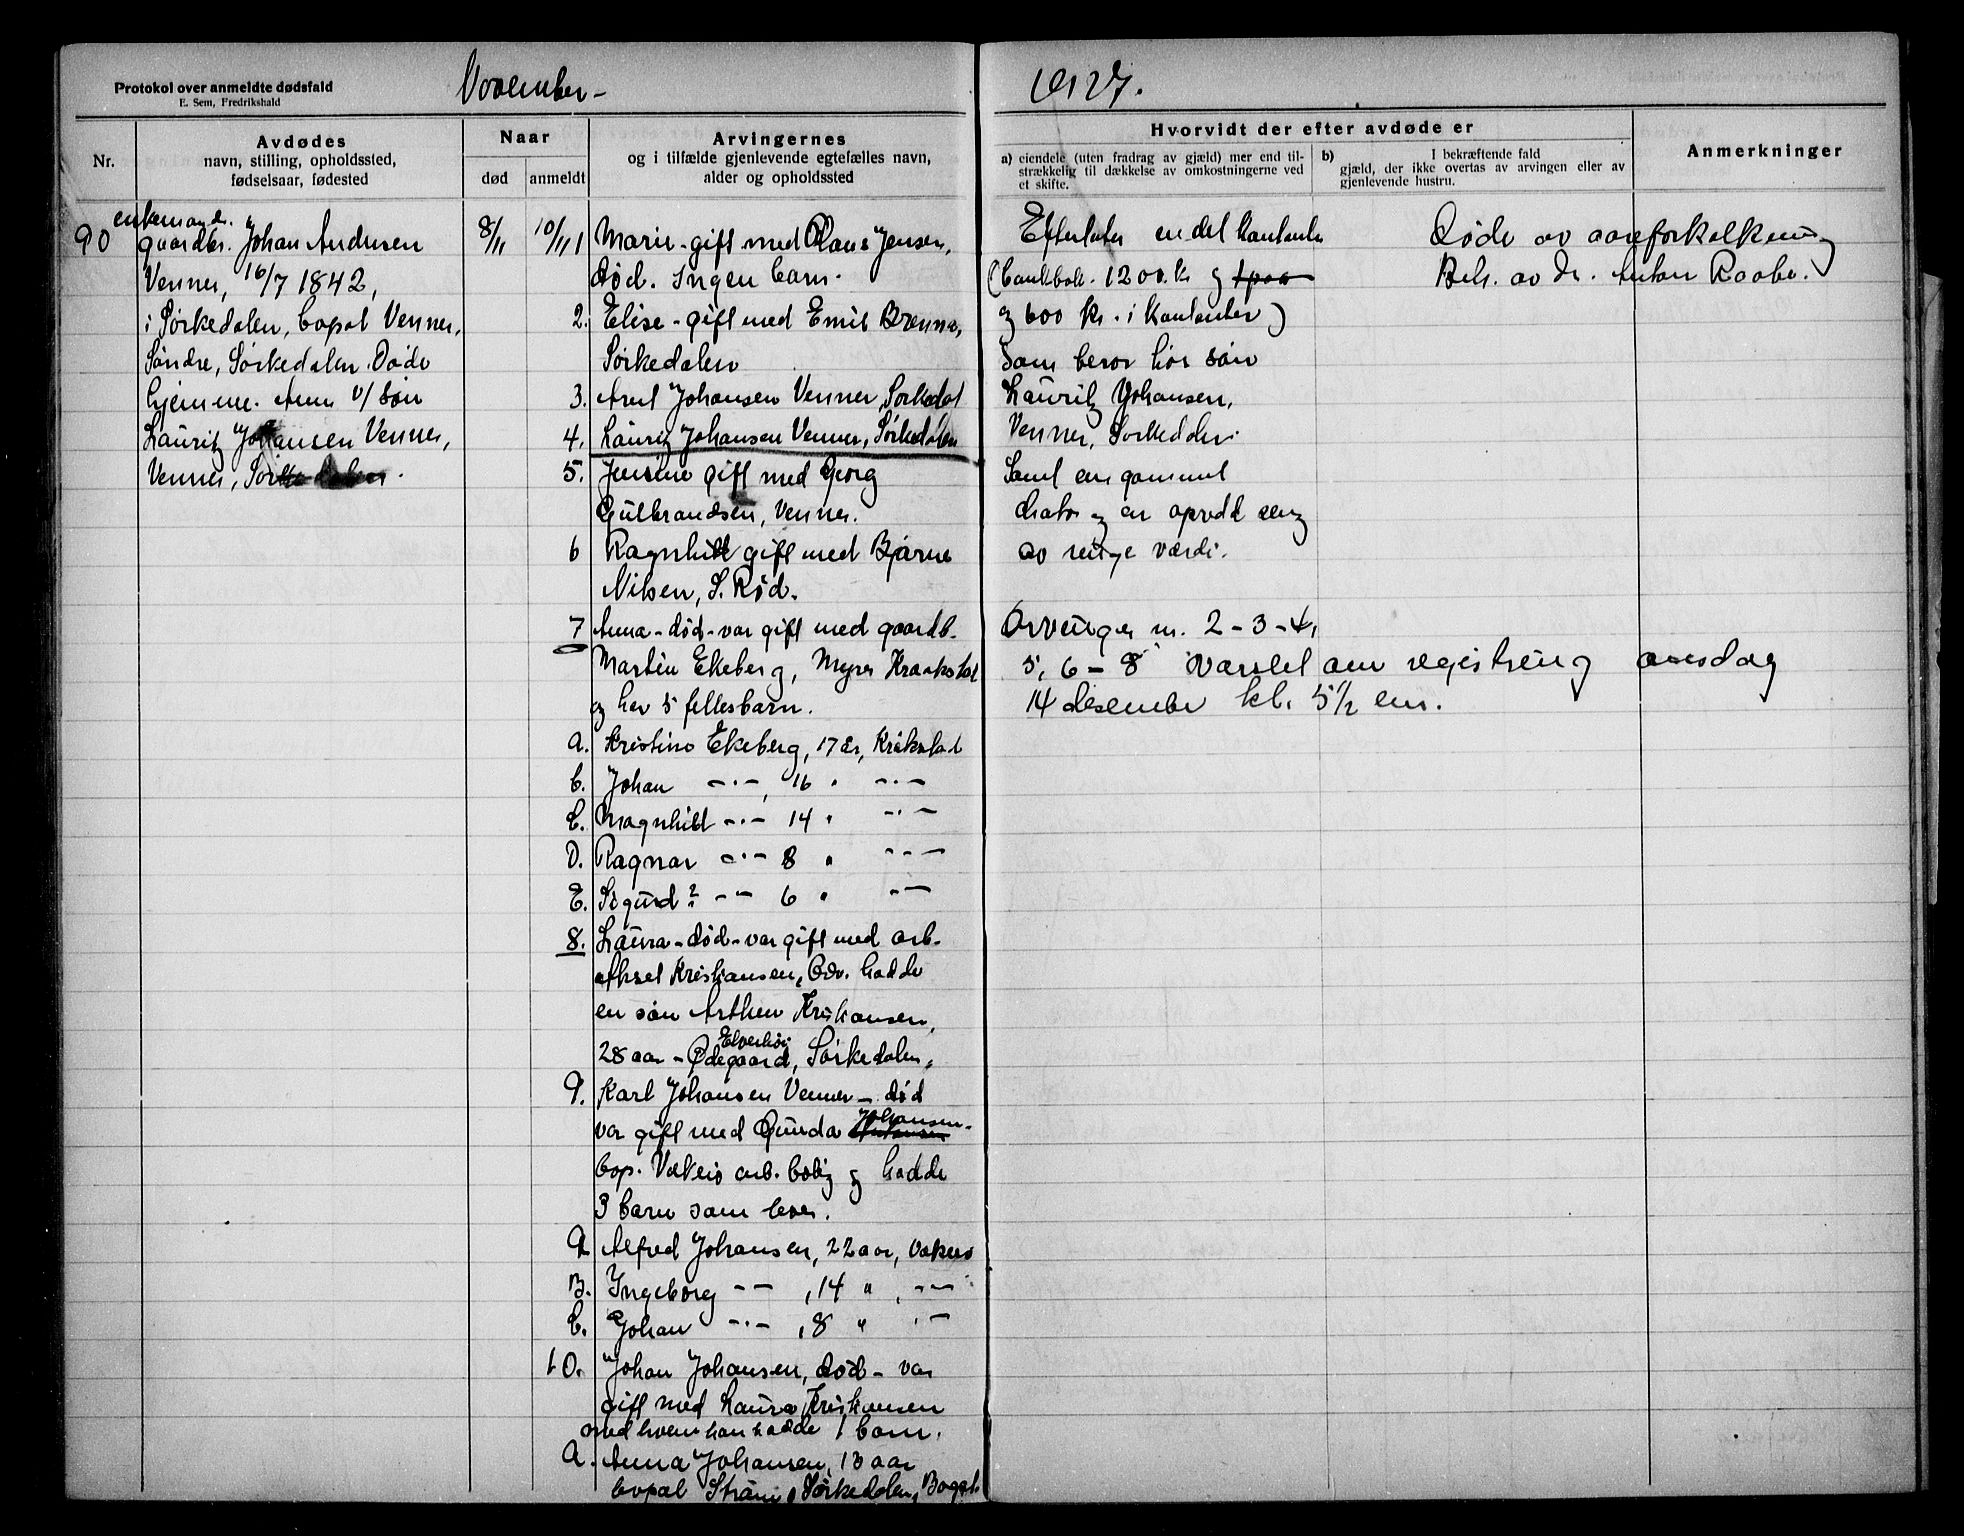 Protokol over anmeldte dødsfald
E. Sem, Fredrikshald
November -
1927.
Nr.
Avdødes
navn, stilling, opholdssted,
fødselsaar, fødested
Naar
død
anmeldt
Arvingernes
og i tilfælde gjenlevende egtefælles navn,
alder og opholdssted
Hvorvidt der efter avdøde er
a) eiendele (uten fradrag av gjæld) mer end til-
strækkelig til dækkelse av omkostningerne ved
et skifte.
b) I bekræftende fald
gjæld, der ikke overtas av arvingen eller av
gjenlevende hustru.
Anmerkninger
90
enkemand.
gaardbr. Johan Andersen
Venner, 16/7 1842,
i Sørkedalen, bopal Venner,
Søndre, Sørkedalen. Døde
hjemme. Anm v/ søn
Lauritz Johansen Venner,
Venner, Sørkedalen.
8/11
10/11
1 Marie - gift med Claus Jensen,
død. Ingen barn.
2. Elise - gift med Emil Brenna,
Sørkedalen
3. Arnt Johansen Venner, Sørkedal
4. Lauritz Johansen Venner, Sørkedalen
5. Jensine gift med Georg
Gulbrandsen, Venner.
6 Ragnhild gift med Bjarne
Nilsen, S. Rød.
7 Anna - død - var gift med gaardb.
Martin Ekeberg, Myrer Kraakstad
og har 5 fellesbarn.
a. Kristine Ekeberg, 17 år, Kråkstad
b. Johan -·-, 16 " -·-
C. Magnhild -·- 14 " -·-
D. Ragnar -·- 8 " -·-
E. Sigurd? -- 6 " -·-
8. Laura - død - var gift med arb.
Aksel Kristiansen, hadde
en søn Arthur Kristiansen,
Elverhøi
28 aar - Ødegaard, Sørkedalen.
9. Karl Johansen Venner - død
var gift med Gunda Johansen-
bop. Vækerø arb. bolig og hadde
3 barn som lever.
a Alfred Johansen, 22 aar, Vækerø
B. Ingeborg -- , 14 " , -·-
C. Johan -·- , 8 " -·-
10. Johan Johansen, død - var
gift med Laura Kristiansen
med hvem han hadde 1 barn.
A. Anna Johansen, 13 aar
bopal Sørkedalen, Bogst.
Efterlater en del kontanter
(bankbok. 1200. kr og
og 600 kr. i kontanter)
som beror hos søn
Lauritz Johansen,
Venner, Sørkedalen.
Samt en gammel
og en opredd seng
av ringe værdi.
Arvinger nr. 2 - 3 - 4,
5, 6 - 8 varslet om registrering onsdag
14 desember kl. 5 1/2 em.
Døde av aareforkalkning
Beh. av dr. Anton Raabe.